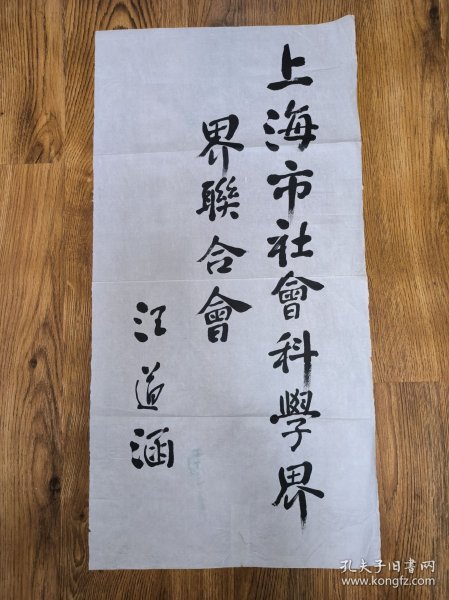 上海市社會科學界
界聯合會
汪道涵
孔夫子旧书网
www.kongfz.com